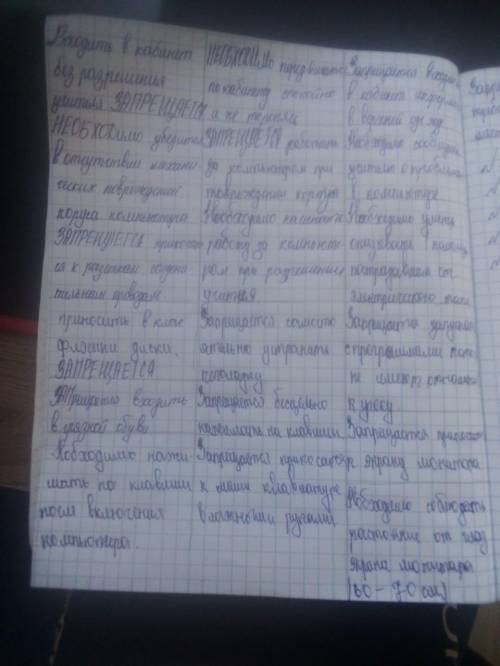 Входить в кабинет
без разрешения
учителя ЗАПРЕЩАЕТСЯ
НЕОБХОДимо убедится
в отсутствии механи
ческих повреждений
коруса компьютера
ЗАПРЕЩАЕТСЯ прикосат
ся к разъемам соедени
тельным проводам
приносить в класс
флэшки диски.
ЗАПРЕЩАЕТСЯ
Запрещается входить
в грязной обуви
Необходимо нажи
мать по клавиши
посля включения
компьютера.
НЕОБХОДИМО передвигатся
по кабинету спокойно
и не торопясь
ЗАПРЕЩАЕТСЯ работать
за компьютером при
повреждении корпуса
Необходимо начинать
работу за компьюте
ром при разрешении
учителя
Запрещается самосто
ятельно устранять
неполадку
Запрещается бесцельно
нажимать на клавиши
Запрещается прикосатся
к мыши клавиатуре
влажными руками
Запрещается входить
в кабинет
в верхней одежде
Необходимо сообщить
учителю о проблемах
в компьютере
Необходимо уметь
оказывать помощь
пострадавшим от
электрического тока
Запрещается запускать
с программами
не имеют отношения
к уроку
Запрещается прикосат
к экрану монитора
Необходимо соблюдать
растояние от глаз
экрана монитора
(60-70 см)